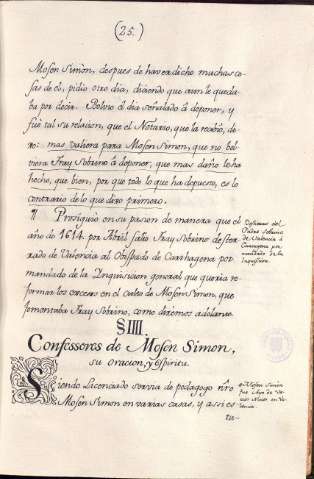 (25.)
Mosen Simon, despues de haver dicho muchas co-
sas de el, pidio otro dia, diciendo que aun le queda-
ba por decir. Bolvio el dia señalado à deponer, y
fuè tal su relacion, que el Notario, que la recibio, di-
xo: mas valiera para Mosen Simon, que no bol-
viera Fray Sobrino à deponer, que mas daño le ha
hecho, que bien, por que todo lo que ha depuesto, es lo
contrario de lo que dixo primero.
Prosiguio en su pasion de manera que el
año de 1614. por Abril salio Fray Sobrino dester-
rado de Valencia al Obispado de Carthagena por
mandado de la Inquisicion general que queria re-
formar los excesos en el culto de Mosen Simon, que
fomentaba Fray Sobrino, como diremos adelante.
Destierro del
Padre Sobrino
de Valencia à
Carthagena por
mandado de la
Inquisicion.
§ IIII.
Confessores de Mosen Simon,
su oracion, y espiritu.
Siendo Licenciado servia de pedagogo nr̃o
Mosen Simon en varias casas, y assi es
tu-
Mosen Simon
fue Ayo de